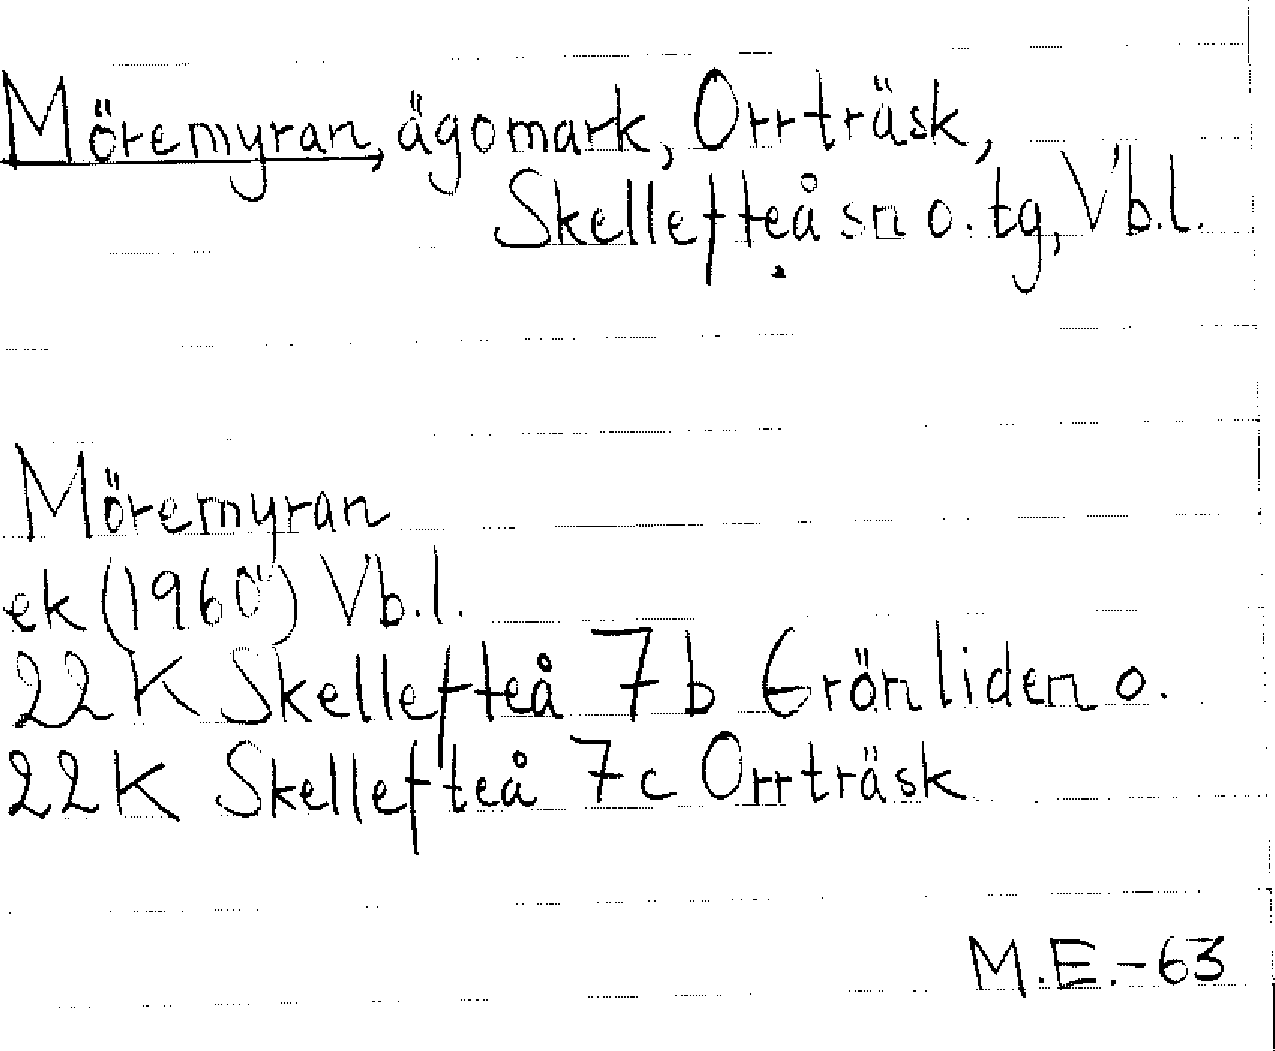 Möremyran, ägomark, Orrträsk,
Skellefteå sn o. tg, Vb.l.
Möremyran
ek (1960) Vb.l.
22K Skellefteå 7b Grönliden o.
22K Skellefteå 7c Orrträsk
M.E.-63